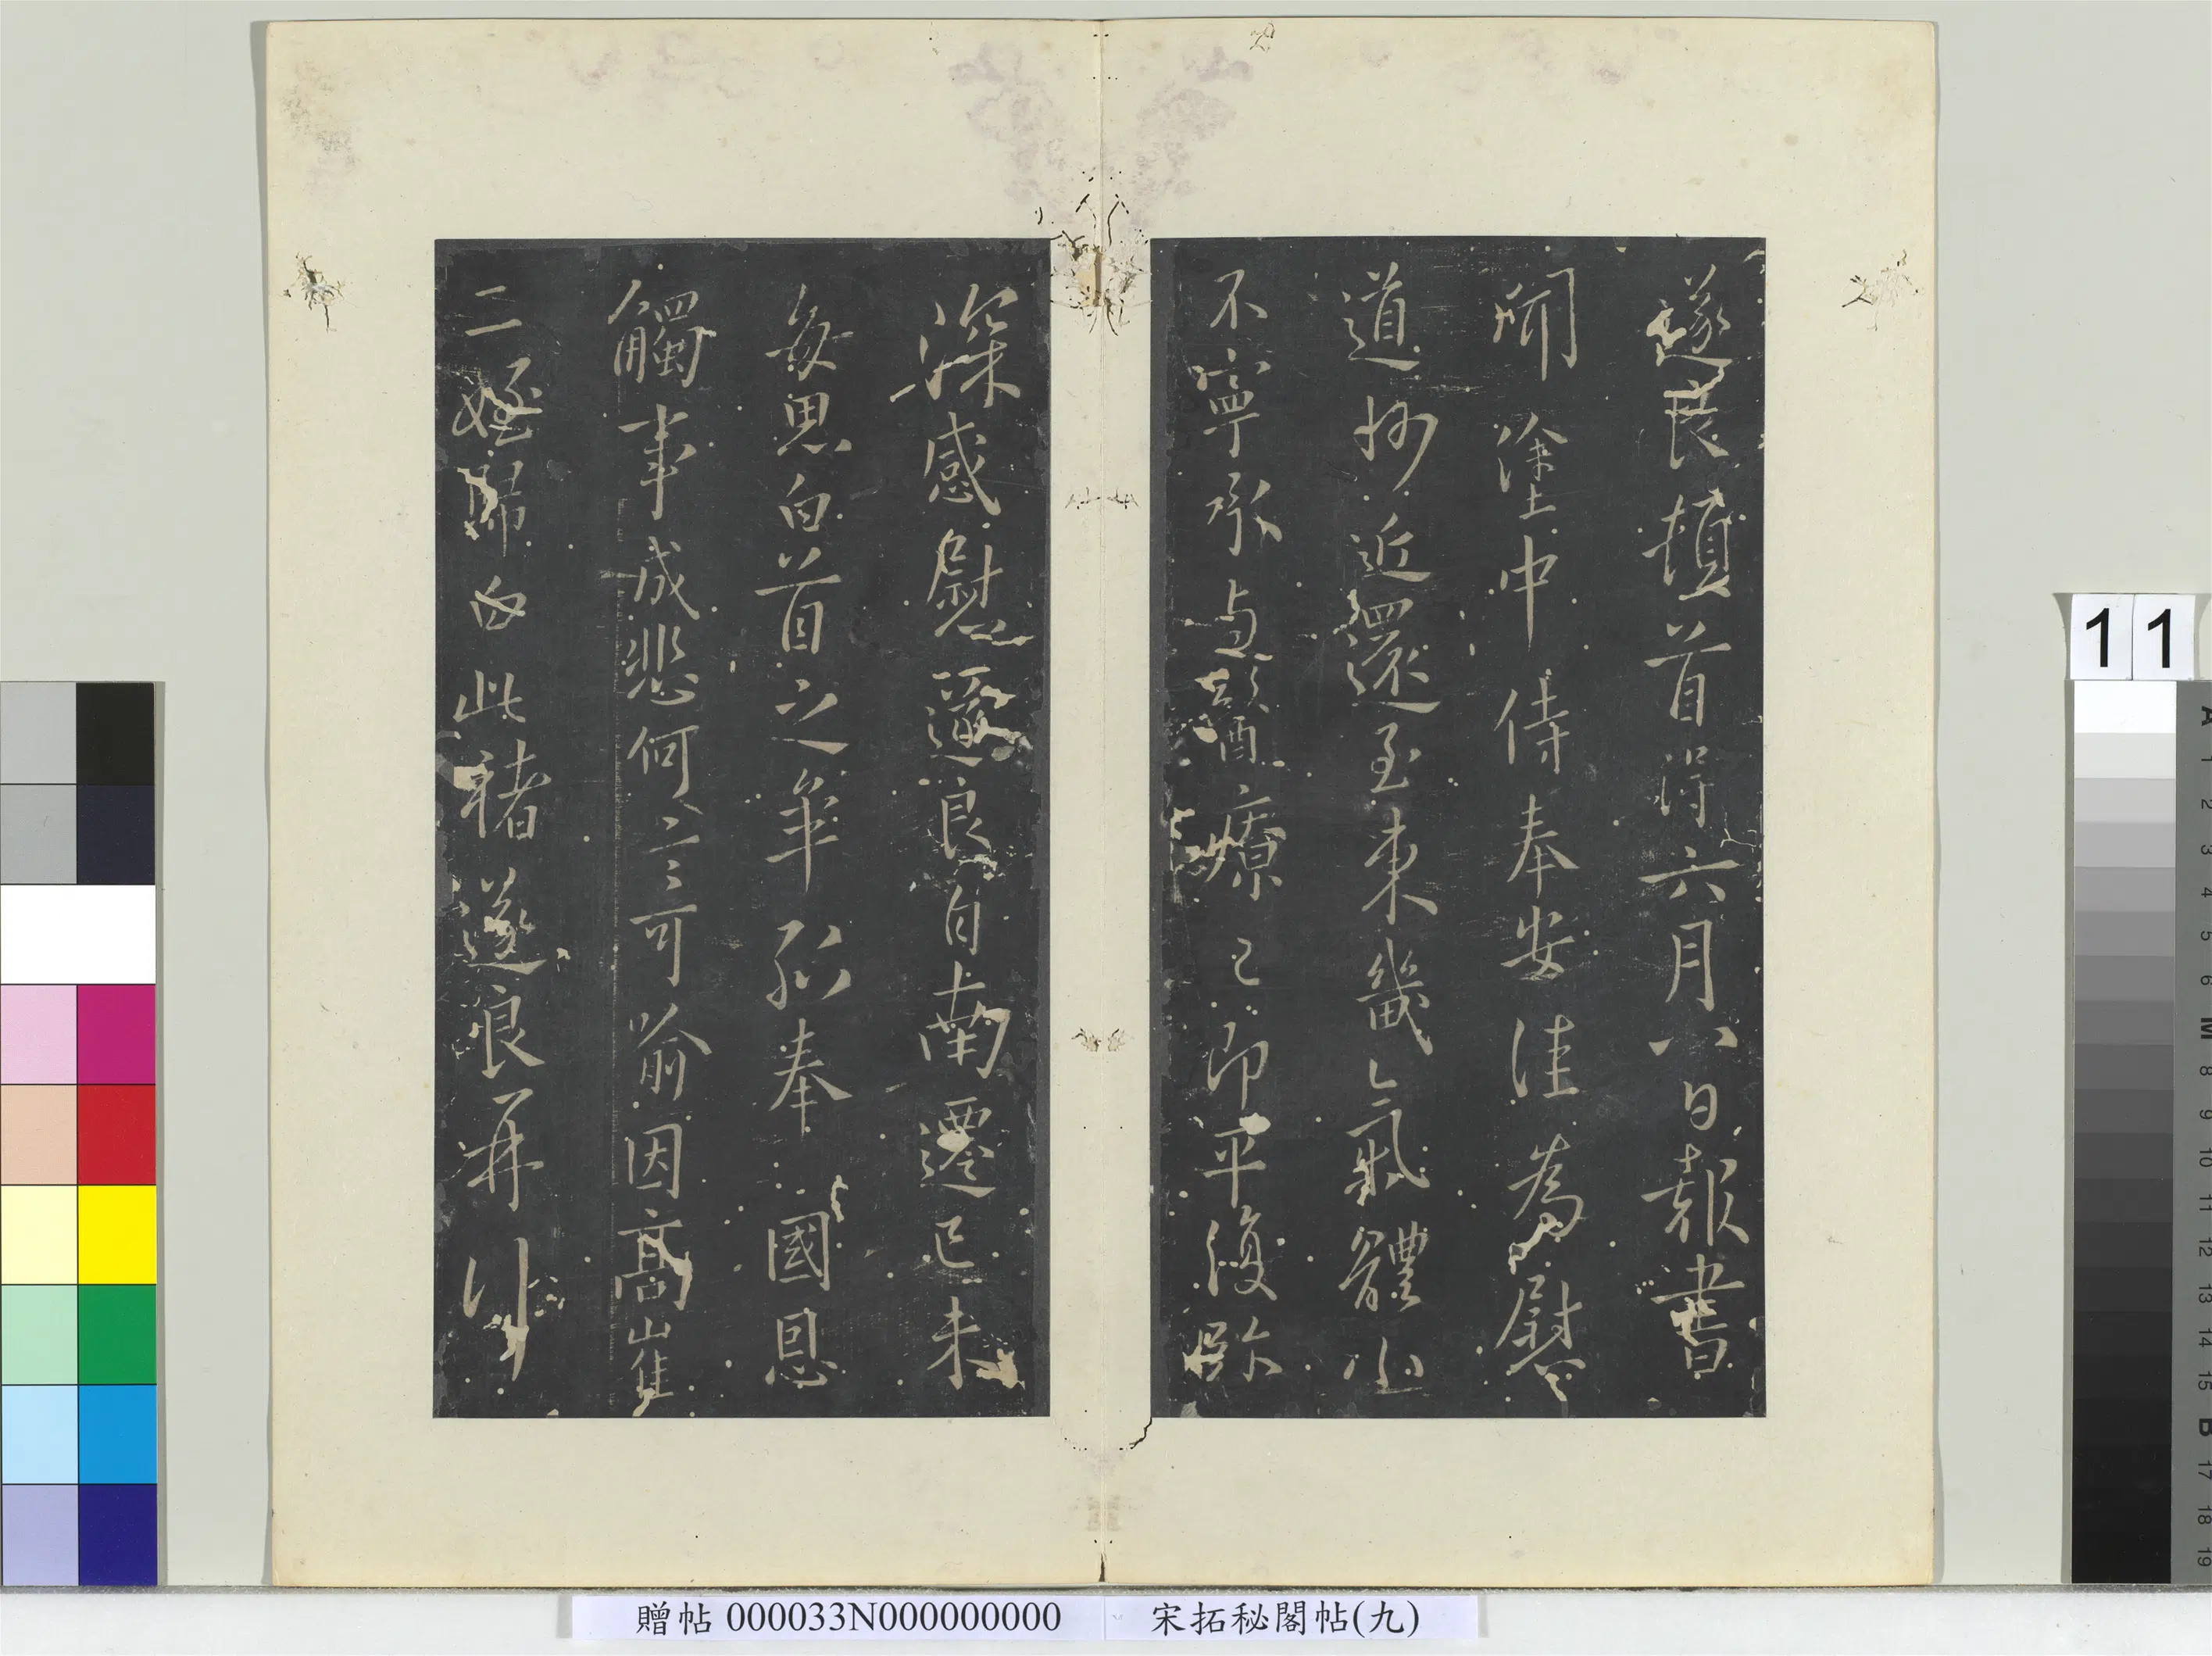 遂良頓首得六月八日報書
聞塗中侍奉安佳為慰
道妙近還至東畿氣體小
不寧承与醫療已即平復弥
深感慰遂良自南遷已来
每思白首之年孤奉國恩
觸事成悲何言可喻因高崔
二姪歸白此褚遂良再拜
贈帖 000033N000000000
宋拓秘閣帖(九)
11
A
1
2
3
4
5
6
M
8
9
10
11
12
13
14
15
B
17
18
19